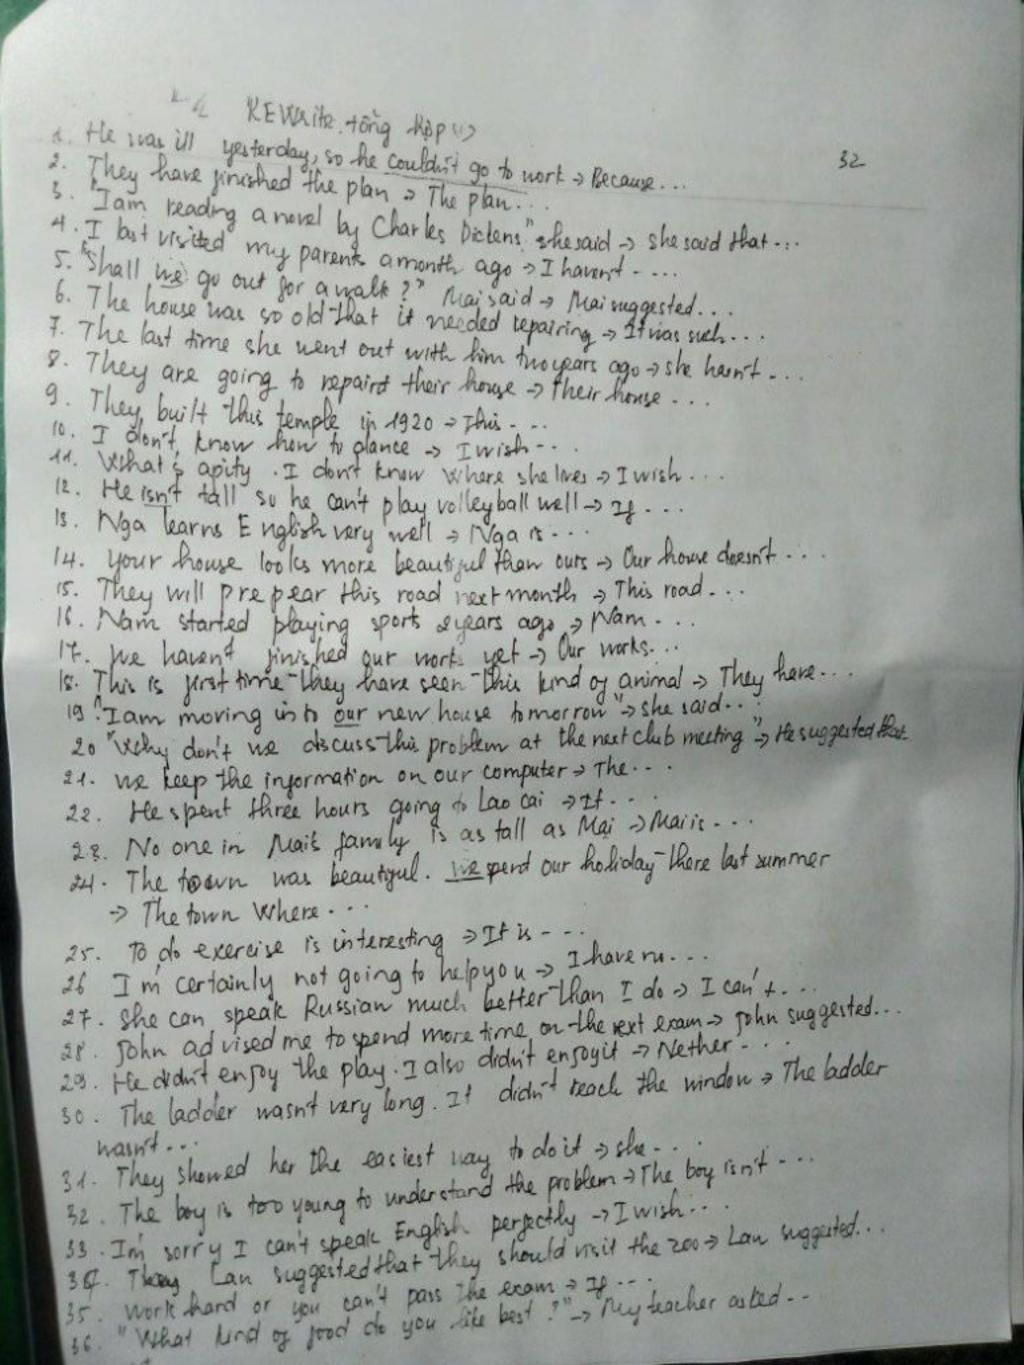 REWrite tổng hợp (1)
32
1. He was ill yesterday, so he couldn't go to work → Because...
2. They have finished the plan → The plan...
3. "I am reading a novel by Charles Dickens" she said → she said that...
4. I last visited my parents a month ago → I haven't ....
5. "Shall we go out for a walk?" Mai said → Mai suggested...
6. The house was so old that it needed repairing → It was such...
7. The last time she went out with him two years ago → she hasn't ...
8. They are going to repaird their house → Their house ...
9. They built this temple in 1920 → This ...
10. I don't know how to dance → I wish ...
11. What's apity. I don't know where she lives → I wish...
12. He isn't tall so he can't play volleyball well → If ...
13. Nga learns English very well → Nga is...
14. Your house looks more beautiful than ours → Our house doesn't ...
15. They will prepear this road next month → This road...
16. Nam started playing sports 2 years ago → Nam...
17. we haven't finished our work yet → Our works...
18. This is first time they have seen this kind of animal → They have...
19. "I am moving into our new house tomorrow" → she said...
20 "Why don't we discuss this problem at the next club meeting" → He suggested that
21. we keep the information on our computer → The...
22. He spent three hours going to Lao cai → It...
23. No one in Mai's family is as tall as Mai → Mai is...
24. The town was beautiful. we spend our holiday there last summer
→ The town Where...
25. To do exercise is interesting → It is ...
26 I'm certainly not going to help you → I have no...
27. She can speak Russian much better than I do → I can't...
28. John advised me to spend more time on the next exam → John suggested...
29. He didn't enjoy the play. I also didn't enjoy it → Nether...
30. The ladder wasn't very long. It didn't reach the window → The ladder
wasn't...
31. They showed her the easiest way to do it → she...
32. The boy is too young to understand the problem → The boy isn't ...
33. I'm sorry I can't speak English perfectly → I wish...
34. Lan suggested that they should visit the zoo → Lan suggested...
35. work hard or you can't pass the exam → If ...
36. "What kind of food do you like best?" → My teacher asked ..